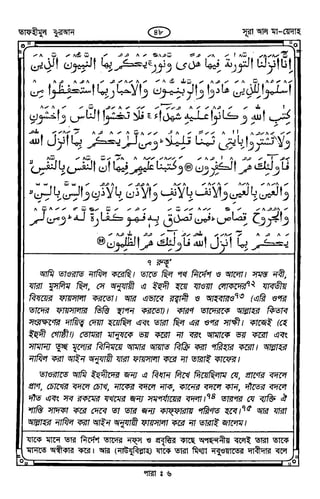 তাফহীমুল কুরআন
৪৮
সূরা আল মা-য়েদাহ
إِنَّا أَنْزَلْنَا التَّوْرٰىةَ فِيهَا هُدًى وَّنُورٌ ۚ يَحْكُمُ بِهَا النَّبِيُّونَ الَّذِينَ
أَسْلَمُوا لِلَّذِينَ هَادُوا وَالرَّبّٰنِيُّونَ وَالْأَحْبَارُ بِمَا اسْتُحْفِظُوا مِنْ
كِتٰبِ اللّٰهِ وَكَانُوا عَلَيْهِ شُهَدَآءَ ۚ فَلَا تَخْشَوُا النَّاسَ وَاخْشَوْنِ
وَلَا تَشْتَرُوا بِاٰيٰتِي ثَمَنًا قَلِيلًا ۚ وَمَنْ لَّمْ يَحْكُمْ بِمَآ أَنْزَلَ اللّٰهُ
فَأُولٰٓئِكَ هُمُ الْكٰفِرُونَ ﴿﴾ وَكَتَبْنَا عَلَيْهِمْ فِيهَآ أَنَّ النَّفْسَ بِالنَّفْسِ ۙ
وَالْعَيْنَ بِالْعَيْنِ وَالْأَنْفَ بِالْأَنْفِ وَالْأُذُنَ بِالْأُذُنِ وَالسِّنَّ بِالسِّنِّ ۙ
وَالْجُرُوحَ قِصَاصٌ ۚ فَمَنْ تَصَدَّقَ بِهٖ فَهُوَ كَفَّارَةٌ لَّهٗ ۚ وَمَنْ لَّمْ
يَحْكُمْ بِمَآ أَنْزَلَ اللّٰهُ فَأُولٰٓئِكَ هُمُ الظّٰلِمُونَ ﴿﴾
৭ রুকূ'
আমি তাওরাত নাযিল করেছি। তাতে ছিল পথ নির্দেশ ও আলো। সমস্ত নবী,
যারা মুসলিম ছিল, সে অনুযায়ী এ ইহুদী হয়ে যাওয়া লোকদের৭২ যাবতীয়
বিষয়ের ফায়সালা করতো। আর এভাবে রব্বানী ও আহবারও৭৩ (এরি ওপর
তাদের ফায়সালার ভিত্তি স্থাপন করতো)। কারণ তাদেরকে আল্লাহর কিতাব
সংরক্ষণের দায়িত্ব দেয়া হয়েছিল এবং তারা ছিল এর ওপর সাক্ষী। কাজেই (হে
ইহুদী গোষ্ঠী!) তোমরা মানুষকে ভয় করো না বরং আমাকে ভয় করো এবং
সামান্য তুচ্ছ মূল্যের বিনিময়ে আমার আয়াত বিক্রি করা পরিহার করো। আল্লাহর
নাযিল করা আইন অনুযায়ী যারা ফায়সালা করে না তারাই কাফের।
তাওরাতে আমি ইহুদীদের জন্য এ বিধান লিখে দিয়েছিলাম যে, প্রাণের বদলে
প্রাণ, চোখের বদলে চোখ, নাকের বদলে নাক, কানের বদলে কান, দাঁতের বদলে
দাঁত এবং সব রকমের যখমের জন্য সমপর্যায়ের বদলা।৭৪ তারপর যে ব্যক্তি ঐ
শাস্তি সাদকা করে দেবে তা তার জন্য কাফ্ফারায় পরিণত হবে।৭৫ আর যারা
আল্লাহর নাযিল করা আইন অনুযায়ী ফায়সালা করে না তারাই জালেম।
যাকে মানে তার নির্দেশ তাদের নফ্স ও প্রবৃত্তির কাছে অপছন্দনীয় বলেই তারা তাকে
মানতে অস্বীকার করে। আর (নাউযুবিল্লাহ) যাকে তারা মিথ্যা নবুওয়াতের দাবীদার বলে
পারা : ৬